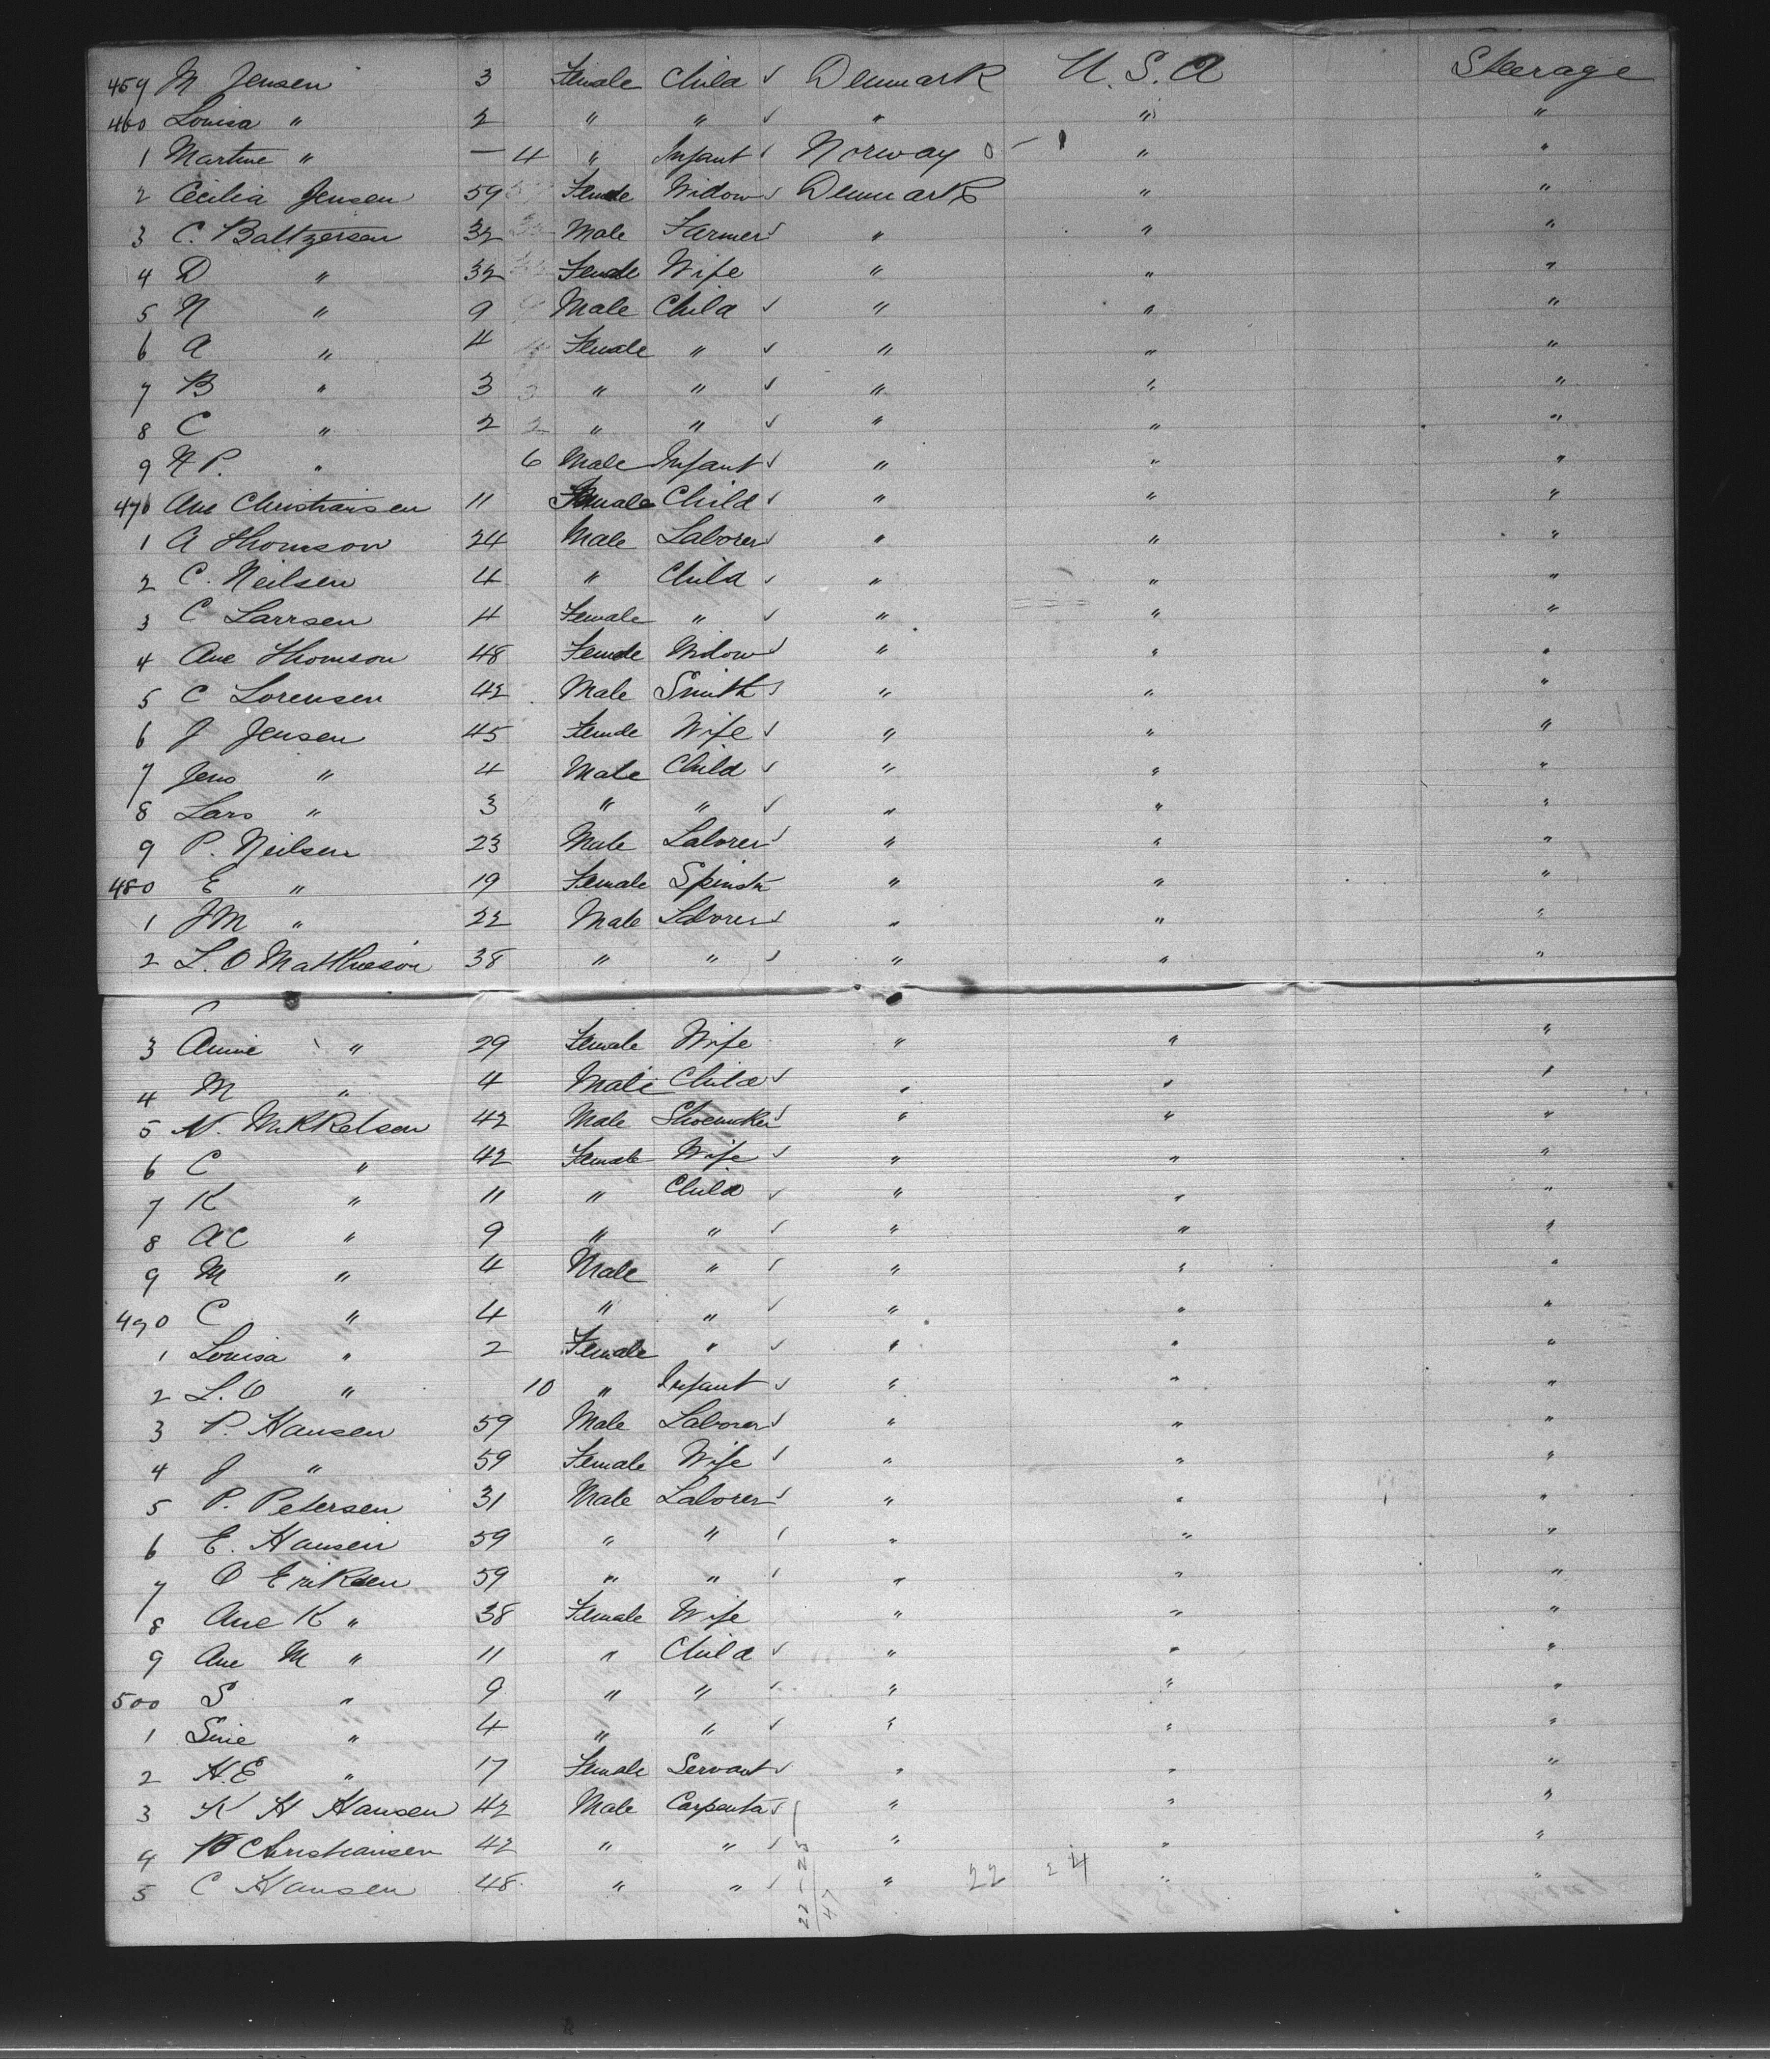 459 M Jensen 3 Female Child ✓ Denmark U.S.A Steerage
460 Louisa " 2 " " ✓ " " "
1 Martine " — 4 " Infant ✓ Norway 0 - 1 " "
2 Cecilia Jensen 59 Female Widow ✓ Denmark " "
3 C. Baltzersen 32 32 Male Farmer ✓ " " "
4 D " 32 32 Female Wife " " "
5 N " 9 9 Male Child ✓ " " "
6 A " 4 4 Female " ✓ " " "
7 B " 3 3 " " ✓ " " "
8 C " 2 2 " " ✓ " " "
9 N P. " 6 Male Infant ✓ " " "
470 Ane Christiansen 11 Female Child ✓ " " "
1 A Thomson 24 Male Laborer ✓ " " "
2 C. Neilsen 4 " Child ✓ " " "
3 C Larrsen 4 Female " ✓ " " "
4 Ane Thomson 48 Female Widow ✓ " " "
5 C Lorensen 42 Male Smith ✓ " " "
6 J Jensen 45 Female Wife ✓ " " "
7 Jens " 4 Male Child ✓ " " "
8 Lars " 3 " " ✓ " " "
9 P. Neilsen 23 Male Laborer ✓ " " "
480 E " 19 Female Spinstr " " "
1 JM " 22 Male Laborer ✓ " " "
2 L. O Matthieson 38 " " ✓ " " "
3 Annie " 29 Female Wife " " "
4 M " 4 Male Child ✓ " " "
5 N. Mikkelsen 42 Male Shoemker ✓ " " "
6 C " 42 Female Wife ✓ " " "
7 K " 11 " Child ✓ " " "
8 AC " 9 " " ✓ " " "
9 M " 4 Male " ✓ " " "
490 C " 4 " " ✓ " " "
1 Louisa " 2 Female " ✓ " " "
2 L. O " 10 " Infant ✓ " " "
3 P. Hansen 59 Male Laborer ✓ " " "
4 J " 59 Female Wife ✓ " " "
5 P. Petersen 31 Male Laborer ✓ " " "
6 E. Hansen 59 " " ✓ " " "
7 O Eriksen 59 " " ✓ " " "
8 Ane K " 38 Female Wife " " "
9 Ane M " 11 " Child ✓ " " "
500 S " 9 " " ✓ " " "
1 Sine " 4 " " ✓ " " "
2 H.E " 17 Female Servant ✓ " " "
3 K H Hansen 42 Male Carpenter ✓ " " "
4 Christiansen 42 " " ✓ " " "
5 C Hansen 48 " " ✓ " 22 24 " "
22-25
47